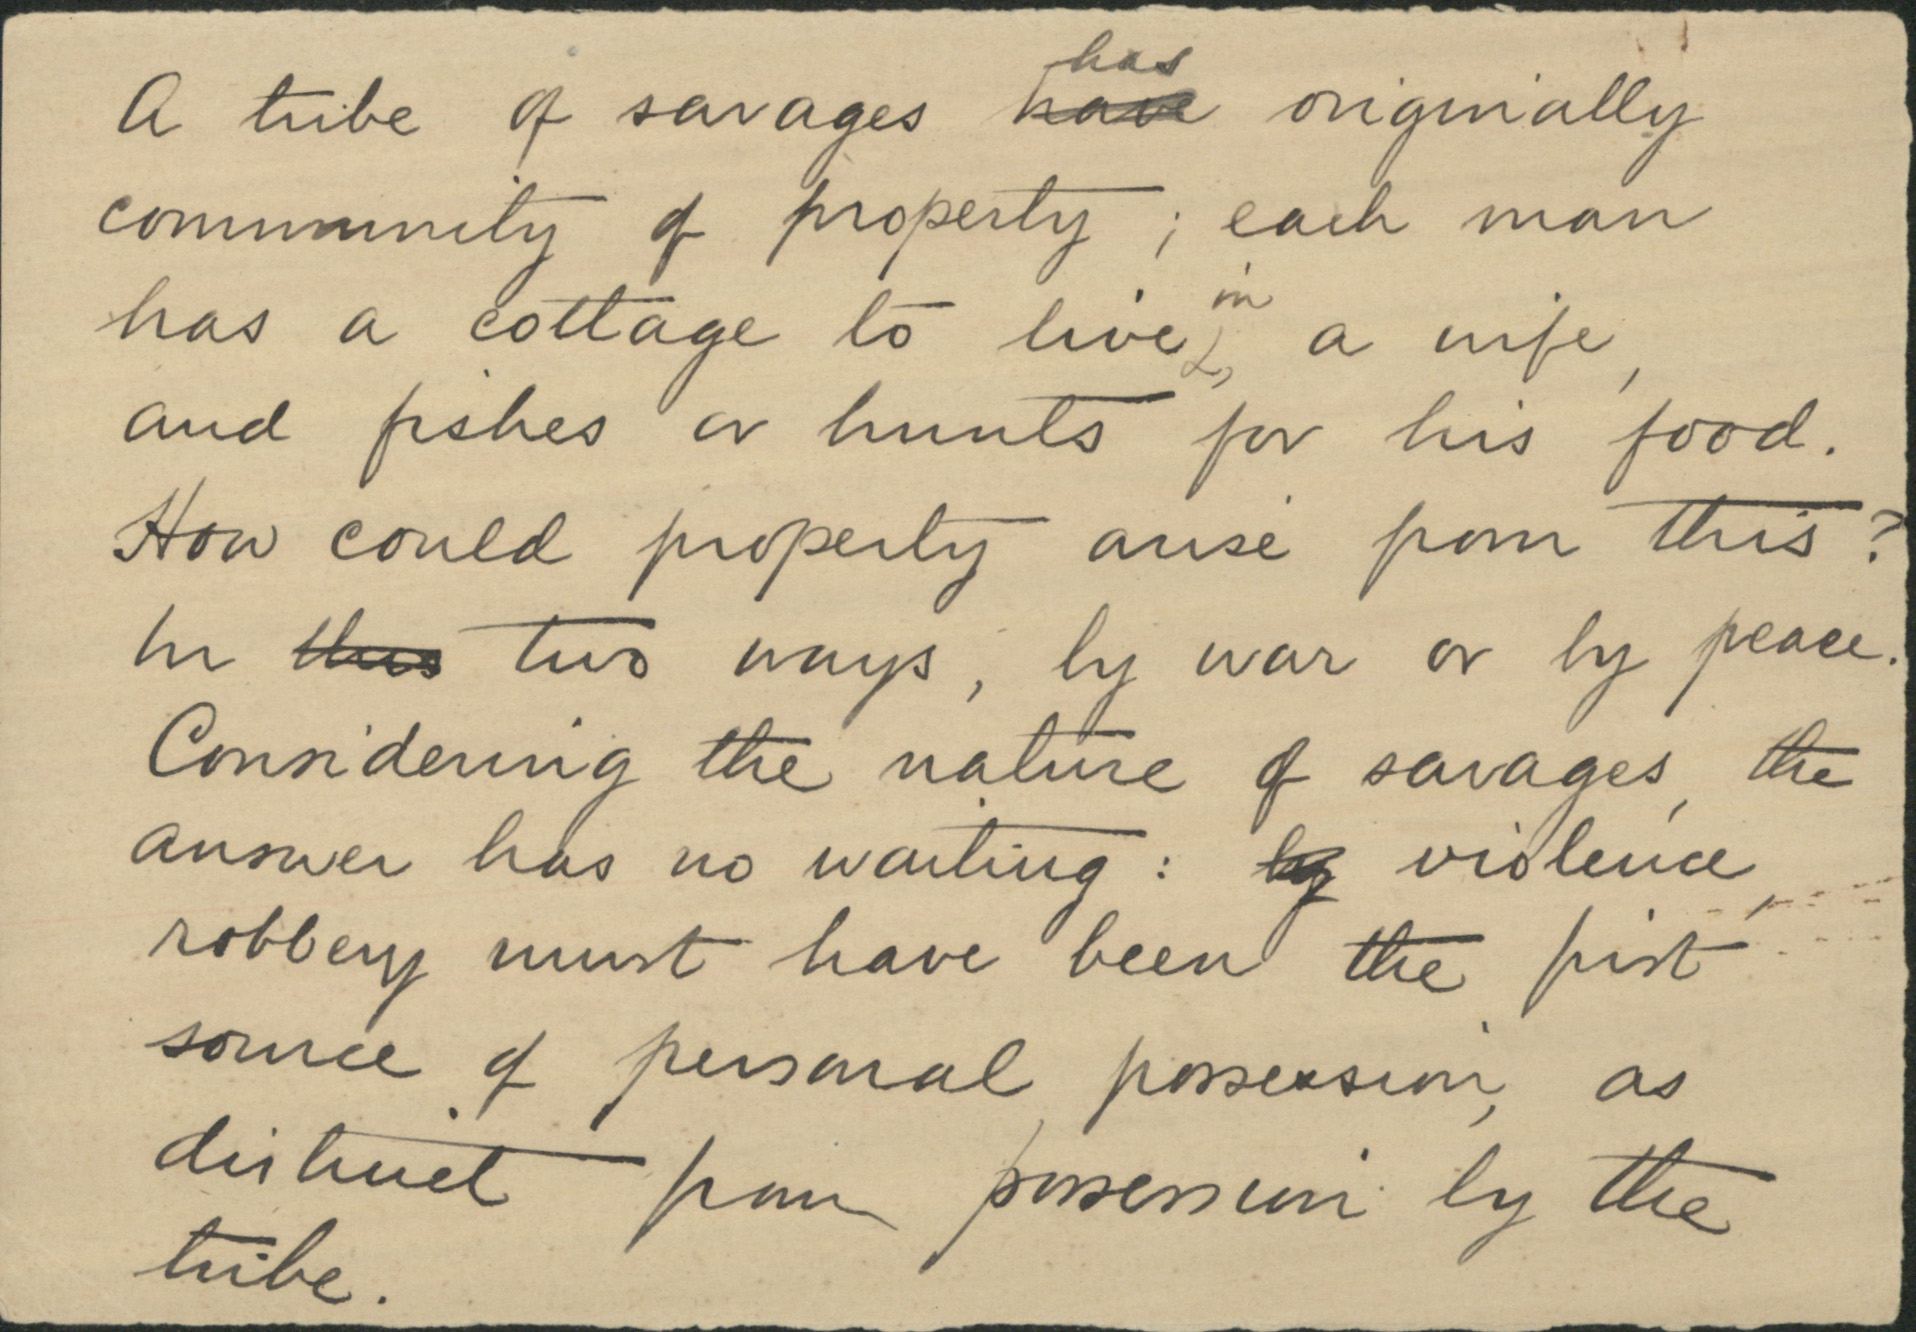 A tribe of savages ~~have~~ has originally
community of property; each man
has a cottage to live in, a wife,
and fishes or hunts for his food.
How could property arise from this?
In ~~this~~ two ways, by war or by peace.
Considering the nature of savages, the
answer has no waiting: ~~by~~ violence,
robbery must have been the first
source of personal possession, as
distinct from possession by the
tribe.